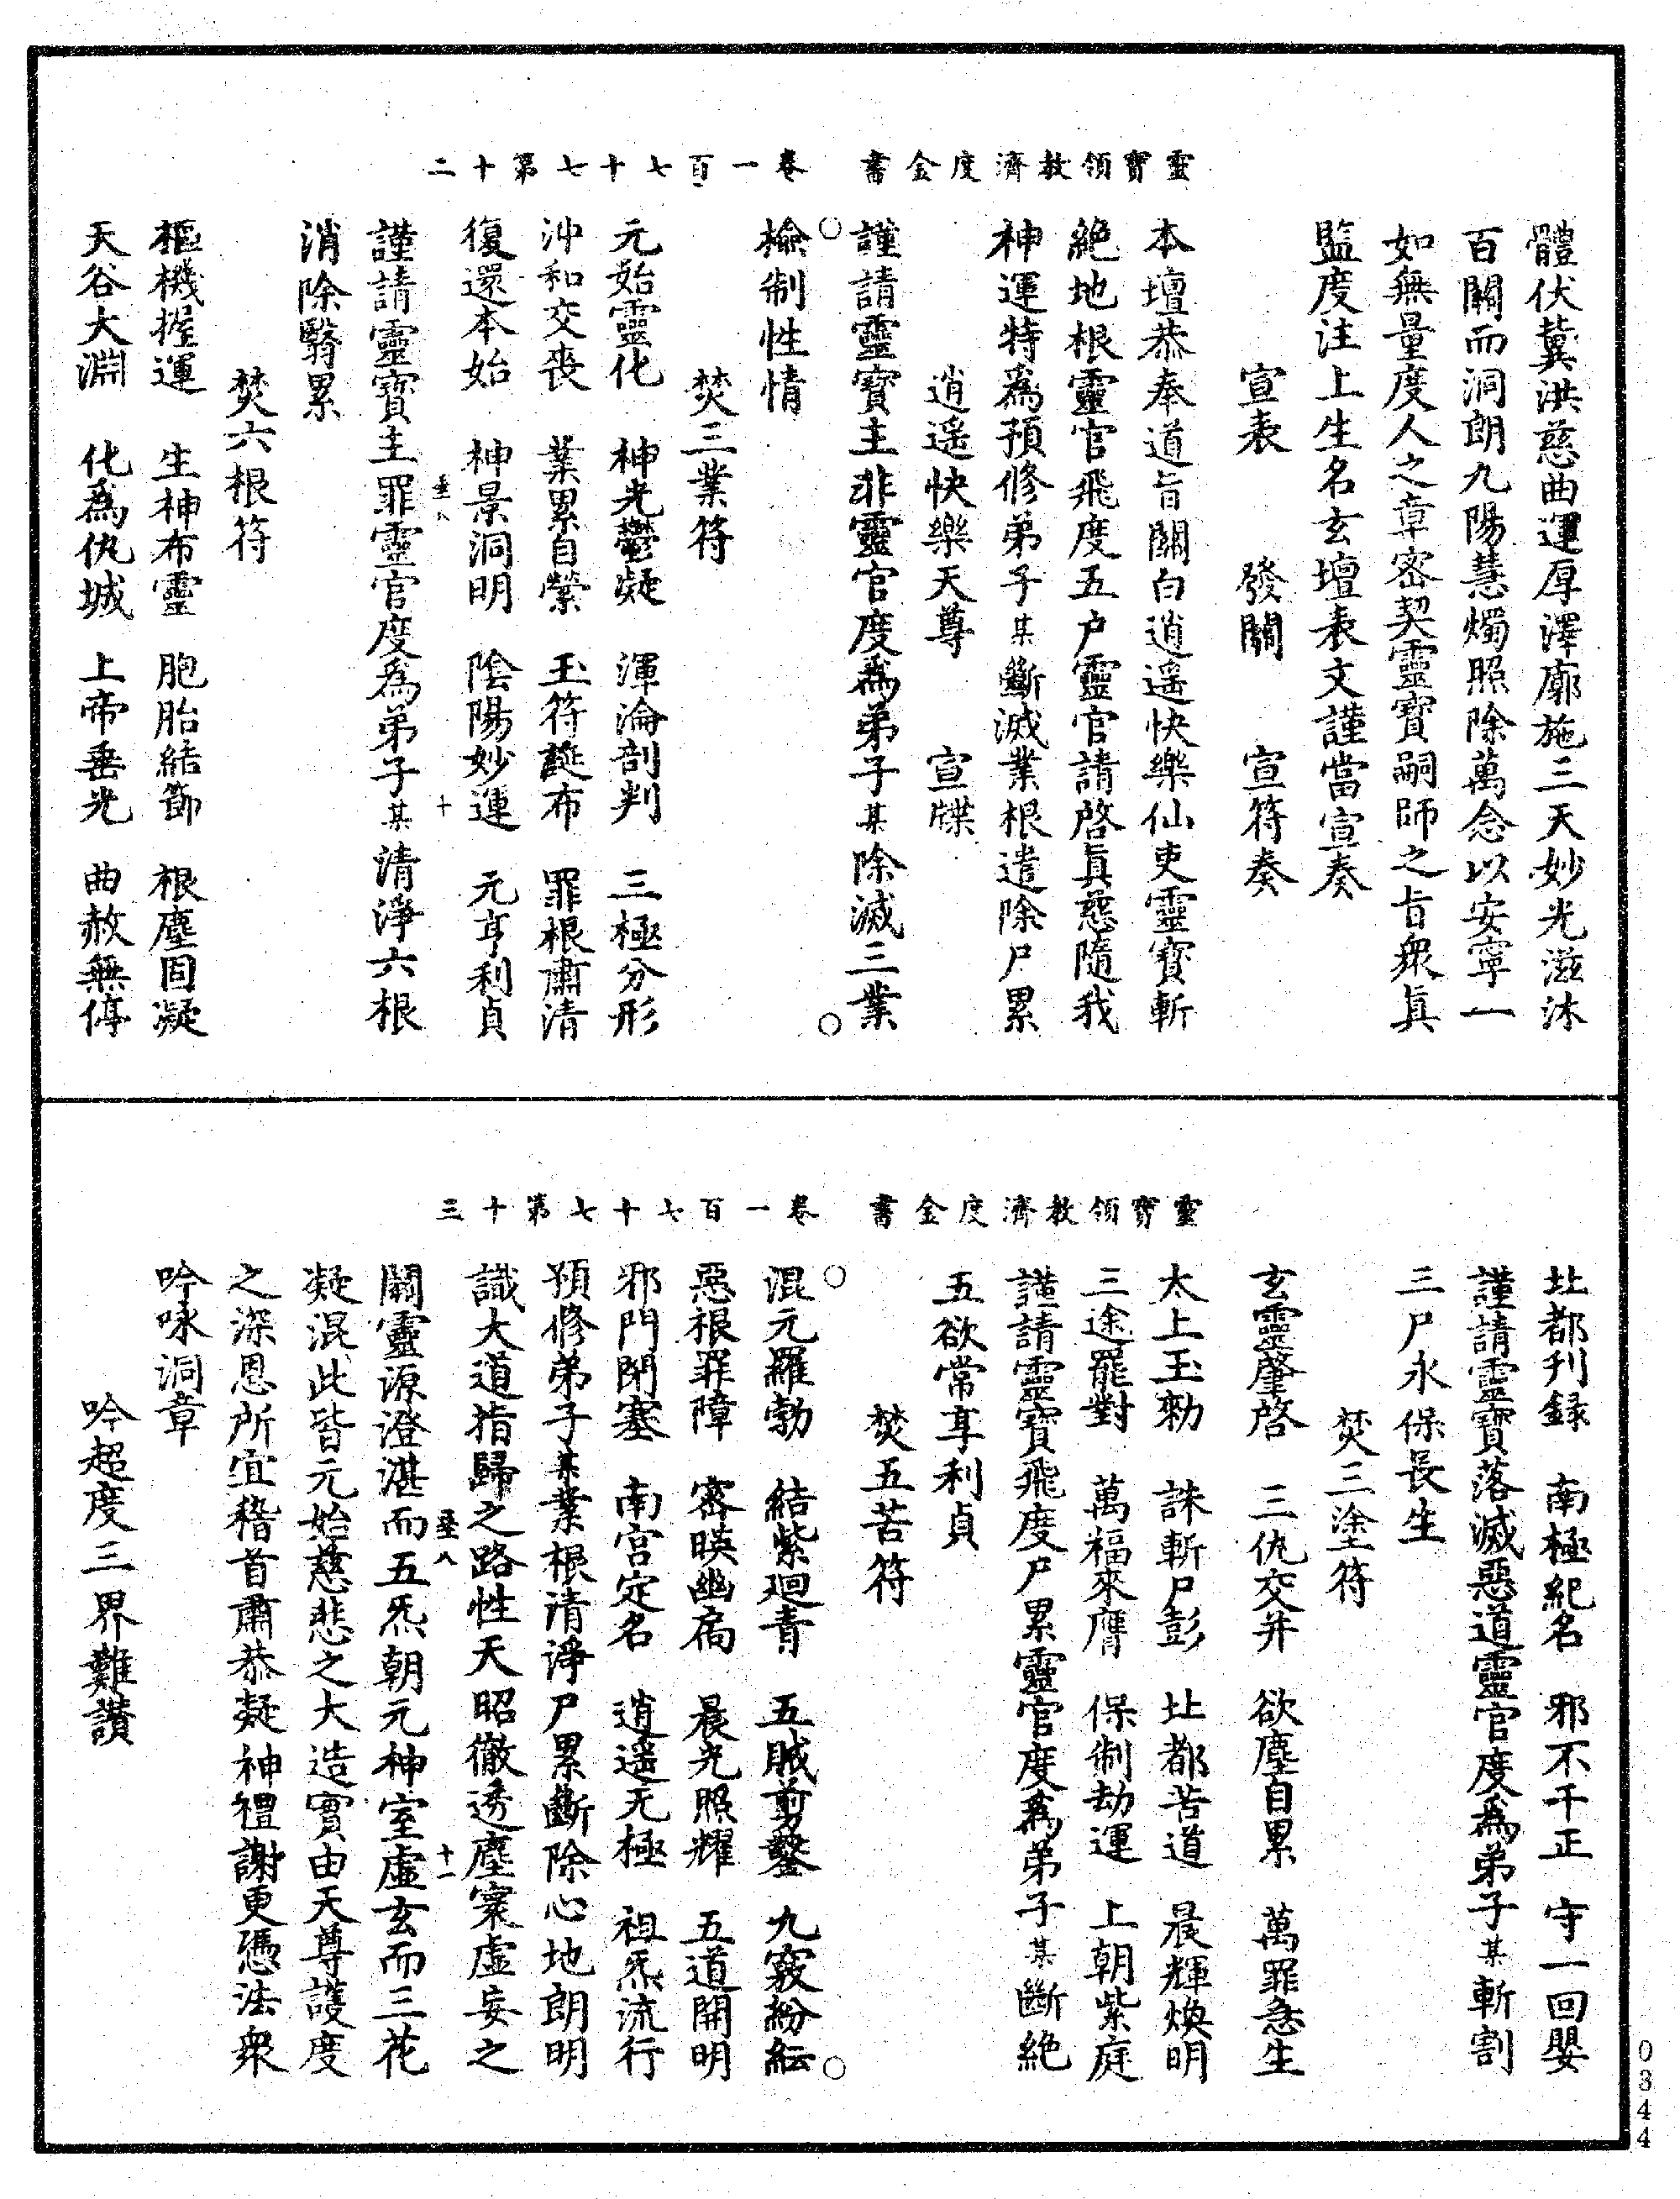 靈寶領教濟度金書　卷一百七十七第十二
體伏冀洪慈曲運厚澤廓施三天妙光滋沐
百關而洞朗九陽慧燭照除萬念以安寧一
如無量度人之章密契靈寶嗣師之旨衆眞
監度注上生名玄壇表文謹當宣奏
宣表　發關　宣符奏
本壇恭奉道旨關白逍遥快樂仙吏靈寶斬
絶地根靈官飛度五户靈官請啓眞慈隨我
神運特爲預修弟子某斷滅業根遣除尸累
逍遥快樂天尊　宣牒
謹請靈寶主非靈官度爲弟子某除滅三業
檢制性情
焚三業符
元始靈化　神光鬱凝　渾淪剖判　三極分形
沖和交喪　業累自縈　玉符誕布　罪根肅清
復還本始　神景洞明　陰陽妙運　元亨利貞
謹請靈寶主罪靈官度爲弟子某清淨六根
消除翳累
焚六根符
樞機握運　生神布靈　胞胎結節　根塵固凝
天谷大淵　化爲仇城　上帝垂光　曲赦無停
十
靈寶領教濟度金書　卷一百七十七第十三
北都刋録　南極紀名　邪不干正　守一回嬰
謹請靈寶落滅惡道靈官度爲弟子某斬割
三尸永保長生
焚三塗符
玄靈肇啓　三仇交并　欲塵自累　萬罪急生
太上玉勑　誅斬尸彭　北都苦道　晨輝煥明
三途罷對　萬福來膺　保制劫運　上朝紫庭
謹請靈寶飛度尸累靈官度爲弟子某斷絶
五欲常享利貞
焚五苦符
混元羅勃　結紫廻青　五賊剪鑿　九竅紛紜
惡根罪障　密暎幽扃　晨光照耀　五道開明
邪門閉塞　南宫定名　逍遥无極　祖炁流行
預修弟子某業根清淨尸累斷除心地朗明
識大道指歸之路性天昭徹透塵寰虚妄之
關靈源澄湛而五炁朝元神室虚玄而三花
凝混此皆元始慈悲之大造實由天尊護度
之深恩所宜稽首肅恭凝神禮謝更憑法衆
吟咏洞章
吟超度三界難讃
八　十一
0344